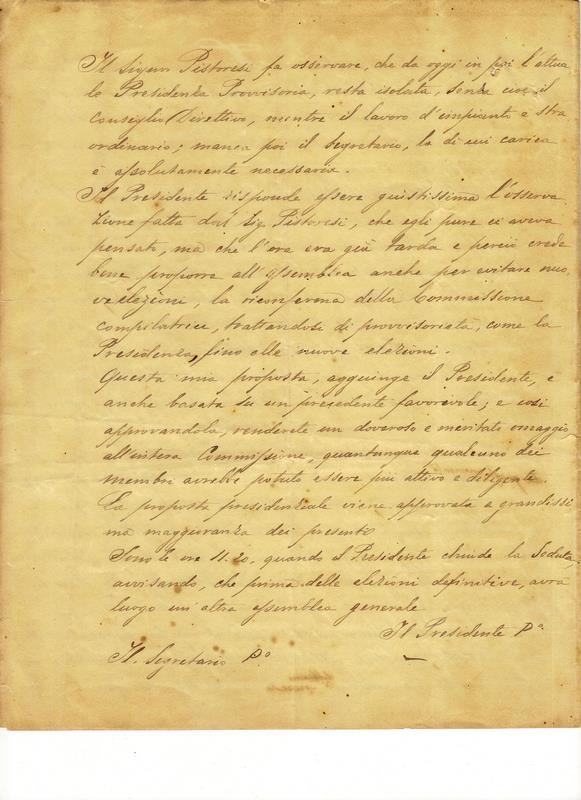 Il Signor Pistoresi fa osservare, che da oggi in poi l'attua
le Presidenza Provvisoria, resta isolata, senza cioè il
Consiglio Direttivo, mentre il lavoro d'impianto e stra
ordinario; manca poi il segretario, la di cui carica
è assolutamente necessaria.
Il Presidente risponde essere giustissima l'osserva
zione fatta dal Sig. Pistoresi, che egli pure ci aveva
pensato, ma che l'ora era già tarda e perciò crede
bene proporre all'Assemblea anche per evitare nuo
ve elezioni, la riconferma della Commissione
compilatrice, trattandosi di provvisorietà, come la
Presidenza, fino alle nuove elezioni.
Questa mia proposta, aggiunge il Presidente, e
anche basata su un precedente favorevole; e così
approvandola, renderete un doveroso e meritato omaggio
all'intera Commissione, quantunque qualcuno dei
membri avrebbe potuto essere più attivo e diligente.
La proposta presidenziale viene approvata a grandissi
ma maggioranza dei presenti
Sono le ore 11.20, quando il Presidente chiude la Seduta,
avvisando, che prima delle elezioni definitive, avrà
luogo un'altra assemblea generale
Il Presidente P.o
Il Segretario P.o